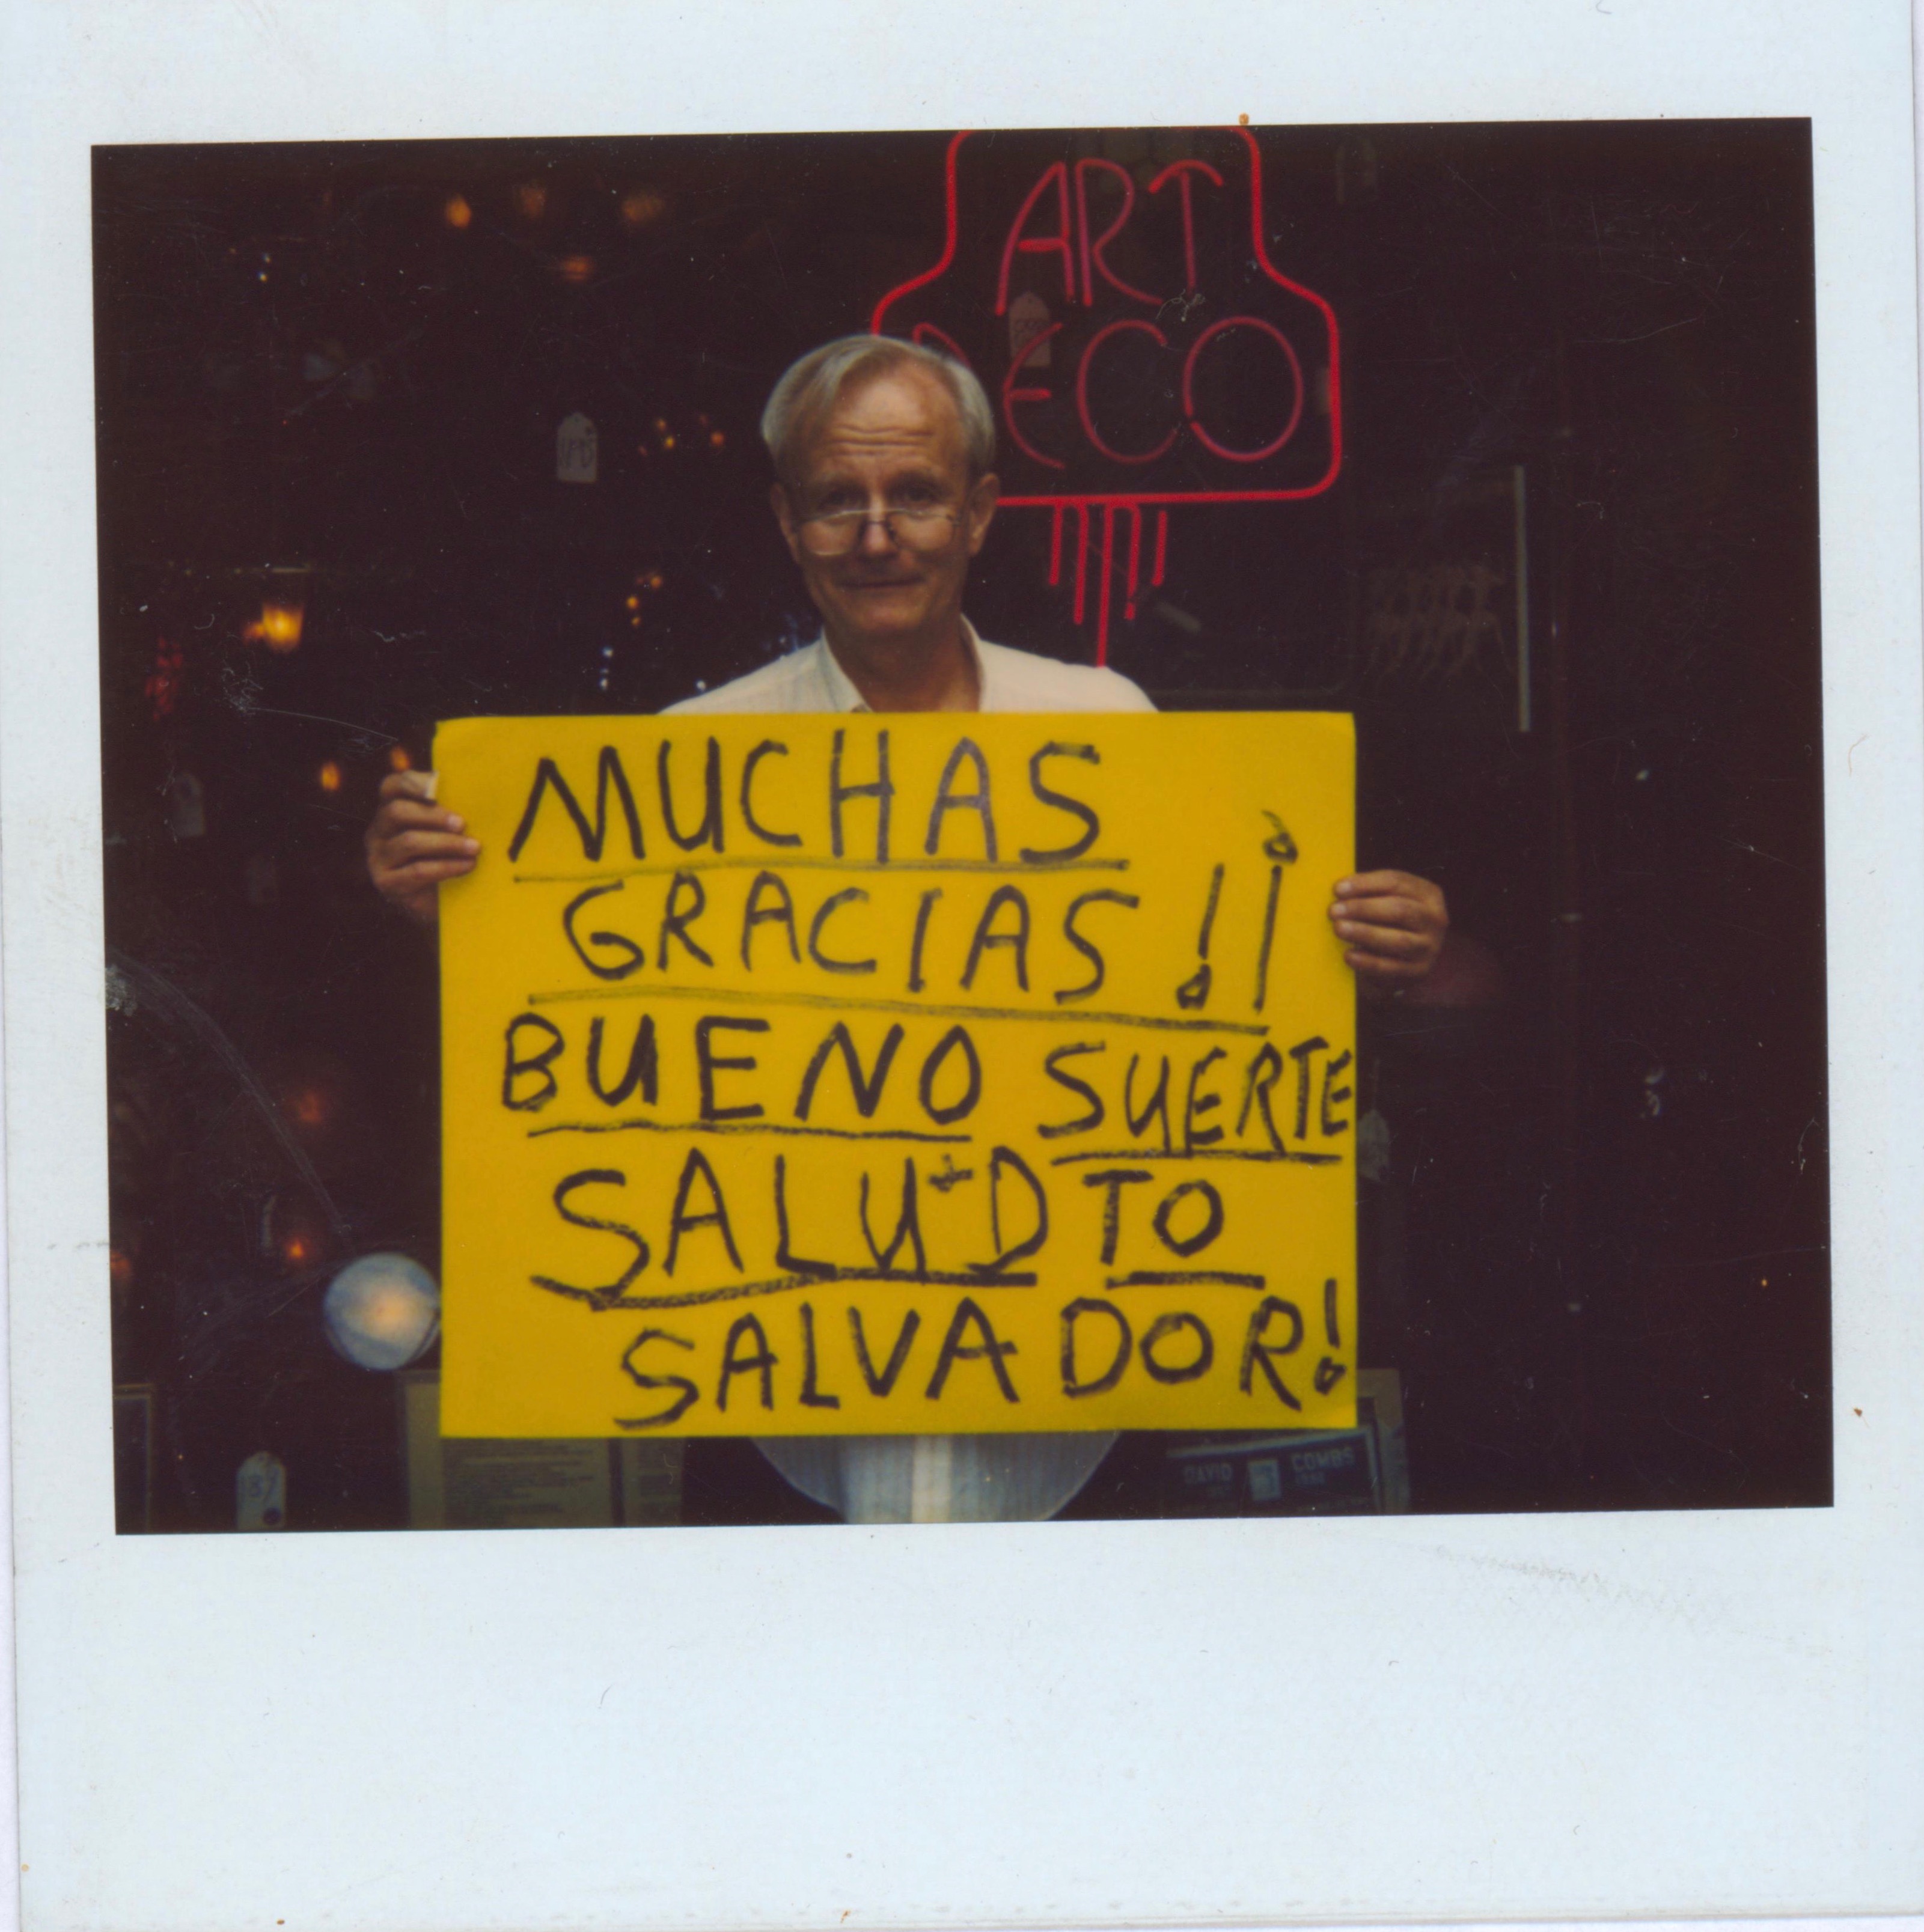 ART
DECO
MUCHAS
GRACIAS !¡
BUENO SUERTE
SALU+D TO
SALVADOR!
DAVID COMBS